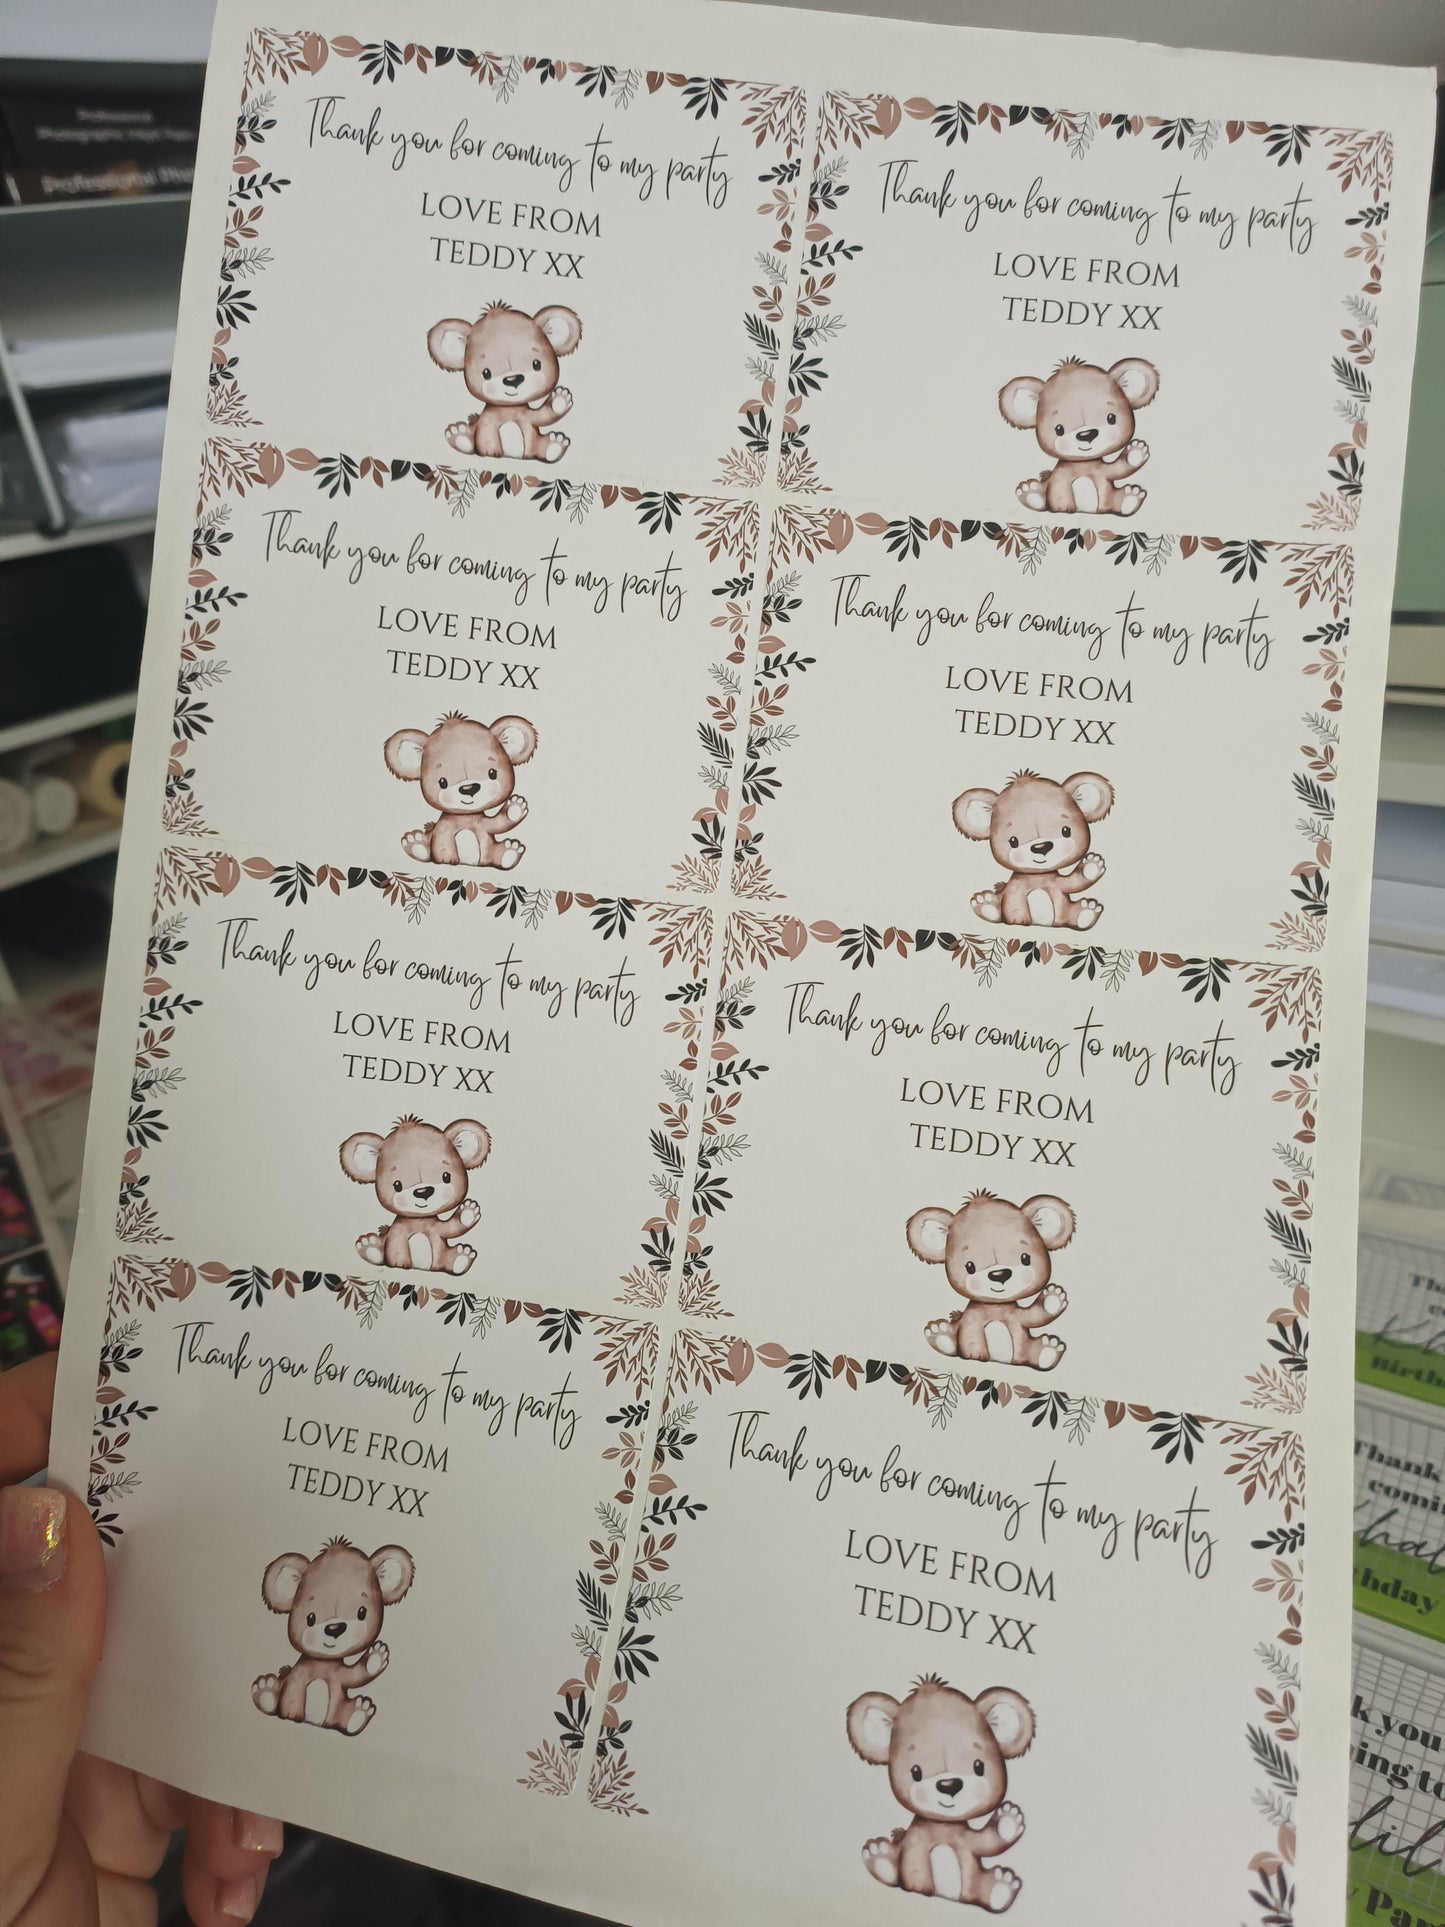 Professional
Professional
Thank you for coming to my party
LOVE FROM
TEDDY XX
Thank you for coming to my party
LOVE FROM
TEDDY XX
Thank you for coming to my party
LOVE FROM
TEDDY XX
Thank you for coming to my party
LOVE FROM
TEDDY XX
Thank you for coming to my party
LOVE FROM
TEDDY XX
Thank you for coming to my party
LOVE FROM
TEDDY XX
Thank you for coming to my party
LOVE FROM
TEDDY XX
Thank you for coming to my party
LOVE FROM
TEDDY XX
Birth
Thank
comin
hday
k you
ing to
lil
Par